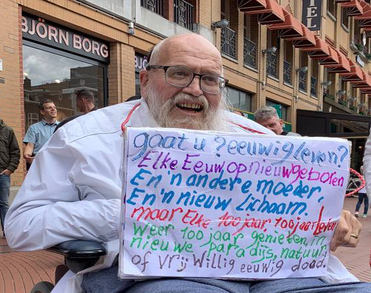 BJÖRN BORG
HOTEL
gaat u ? eeuwig leven?
Elke Eeuw opnieuw geboren
En 'n andere moeder.
En 'n nieuw Lichaam.
maar Elke 100 jaar 100 jaar leven
Weer 100 jaar genieten, in
nieuwe paradijs, natuur
of vrij Willig eeuwig dood.